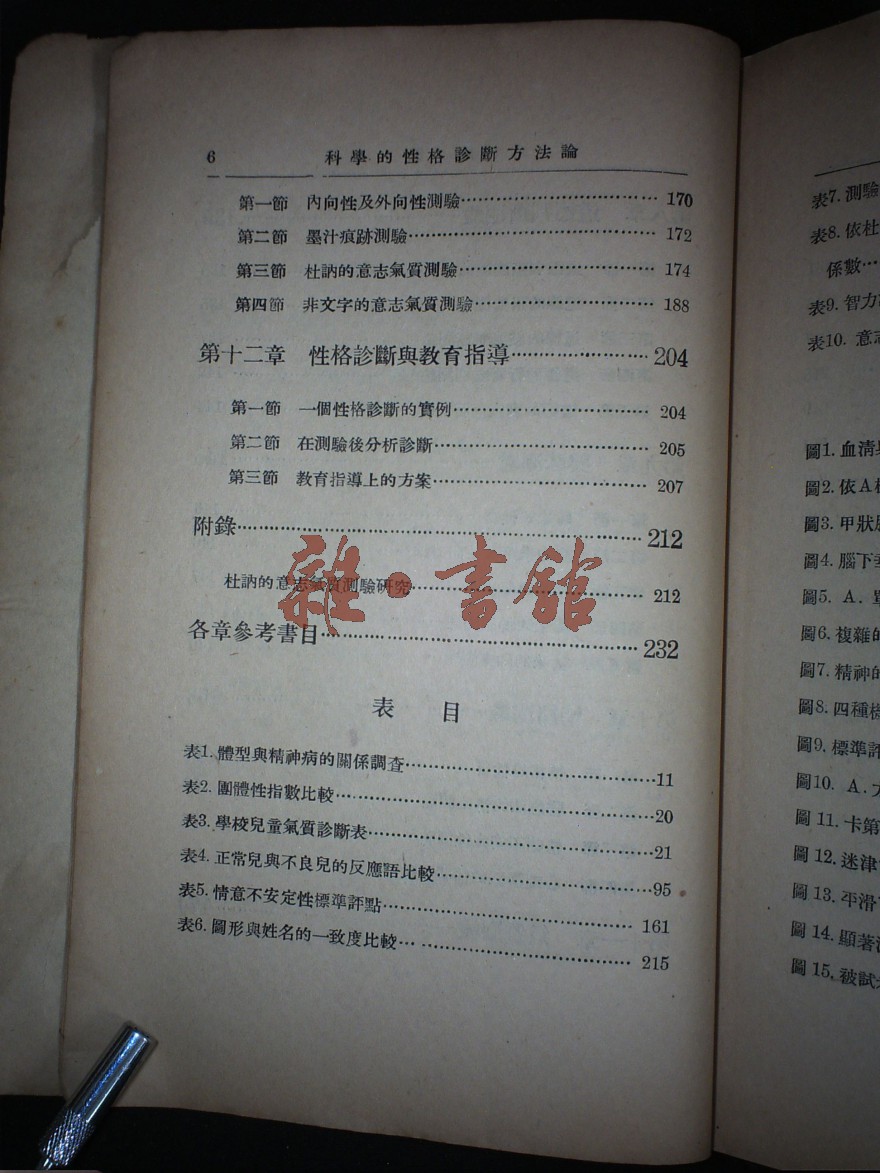 6 科學的性格診斷方法論
第一節 內向性及外向性測驗……………………… 170
第二節 墨汁痕跡測驗……………………………… 172
第三節 杜訥的意志氣質測驗……………………… 174
第四節 非文字的意志氣質測驗…………………… 188
第十二章 性格診斷與教育指導………………… 204
第一節 一個性格診斷的實例……………………… 204
第二節 在測驗後分析診斷………………………… 205
第三節 教育指導上的方案………………………… 207
附錄……………………………………………………212
杜訥的意志氣質測驗研究……………………………212
各章參考書目…………………………………………232
雜·書館
表 目
表1. 體型與精神病的關係調查……………………………11
表2. 團體性指數比較………………………………………20
表3. 學校兒童氣質診斷表…………………………………21
表4. 正常兒與不良兒的反應語比較………………………95
表5. 情意不安定性標準評點……………………………… 161
表6. 圖形與姓名的一致度比較…………………………… 215
表7. 測驗
表8. 依杜
係數…
表9. 智力
表10. 意志
圖1. 血清
圖2. 依A
圖3. 甲狀腺
圖4. 腦下垂
圖5. A. 單
圖6. 複雜的
圖7. 精神的
圖8. 四種
圖9. 標準評
圖10. A.
圖11. 卡第
圖12. 迷津
圖13. 平滑
圖14. 顯著
圖15. 被試